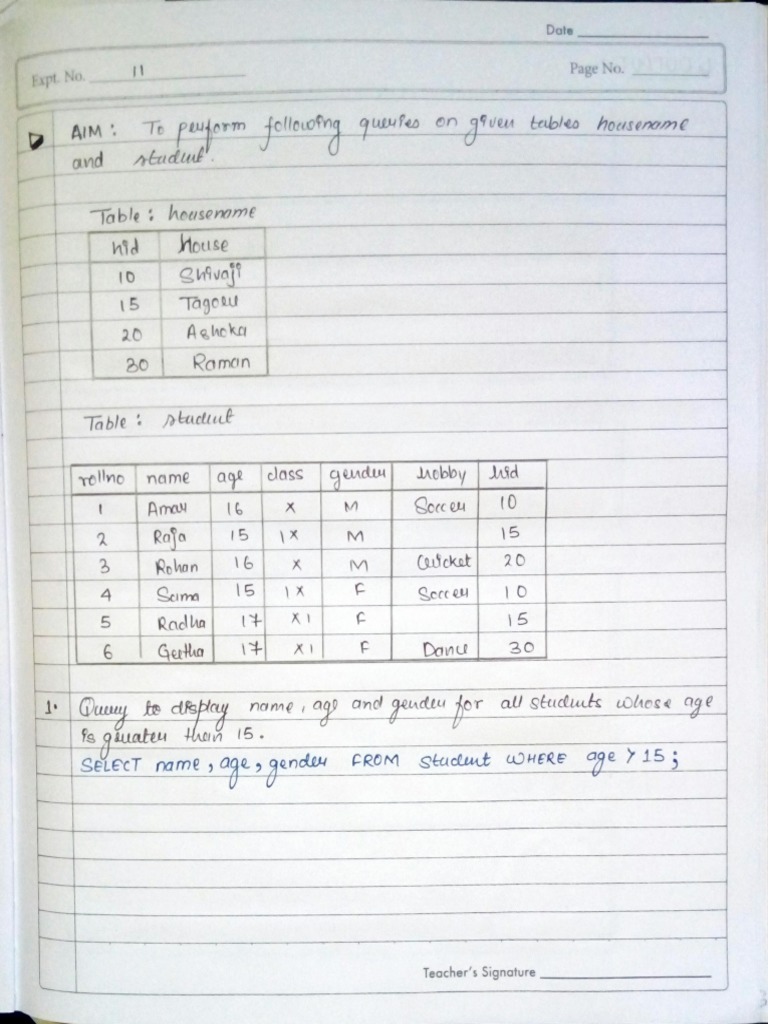 Date
Expt. No. 11
Page No.
AIM: To perform following queries on given tables housename
and student.
Table: housename
hid House
10 Shivaji
15 Tagore
20 Ashoka
30 Raman
Table: student
rollno name age class gender hobby hid
1 Amar 16 X M Soccer 10
2 Raja 15 IX M 15
3 Rohan 16 X M Cricket 20
4 Seima 15 IX F Soccer 10
5 Radha 17 XI F 15
6 Geetha 17 XI F Dance 30
1. Query to display name, age and gender for all students whose age
is greater than 15.
SELECT name, age, gender FROM student WHERE age > 15;
Teacher's Signature